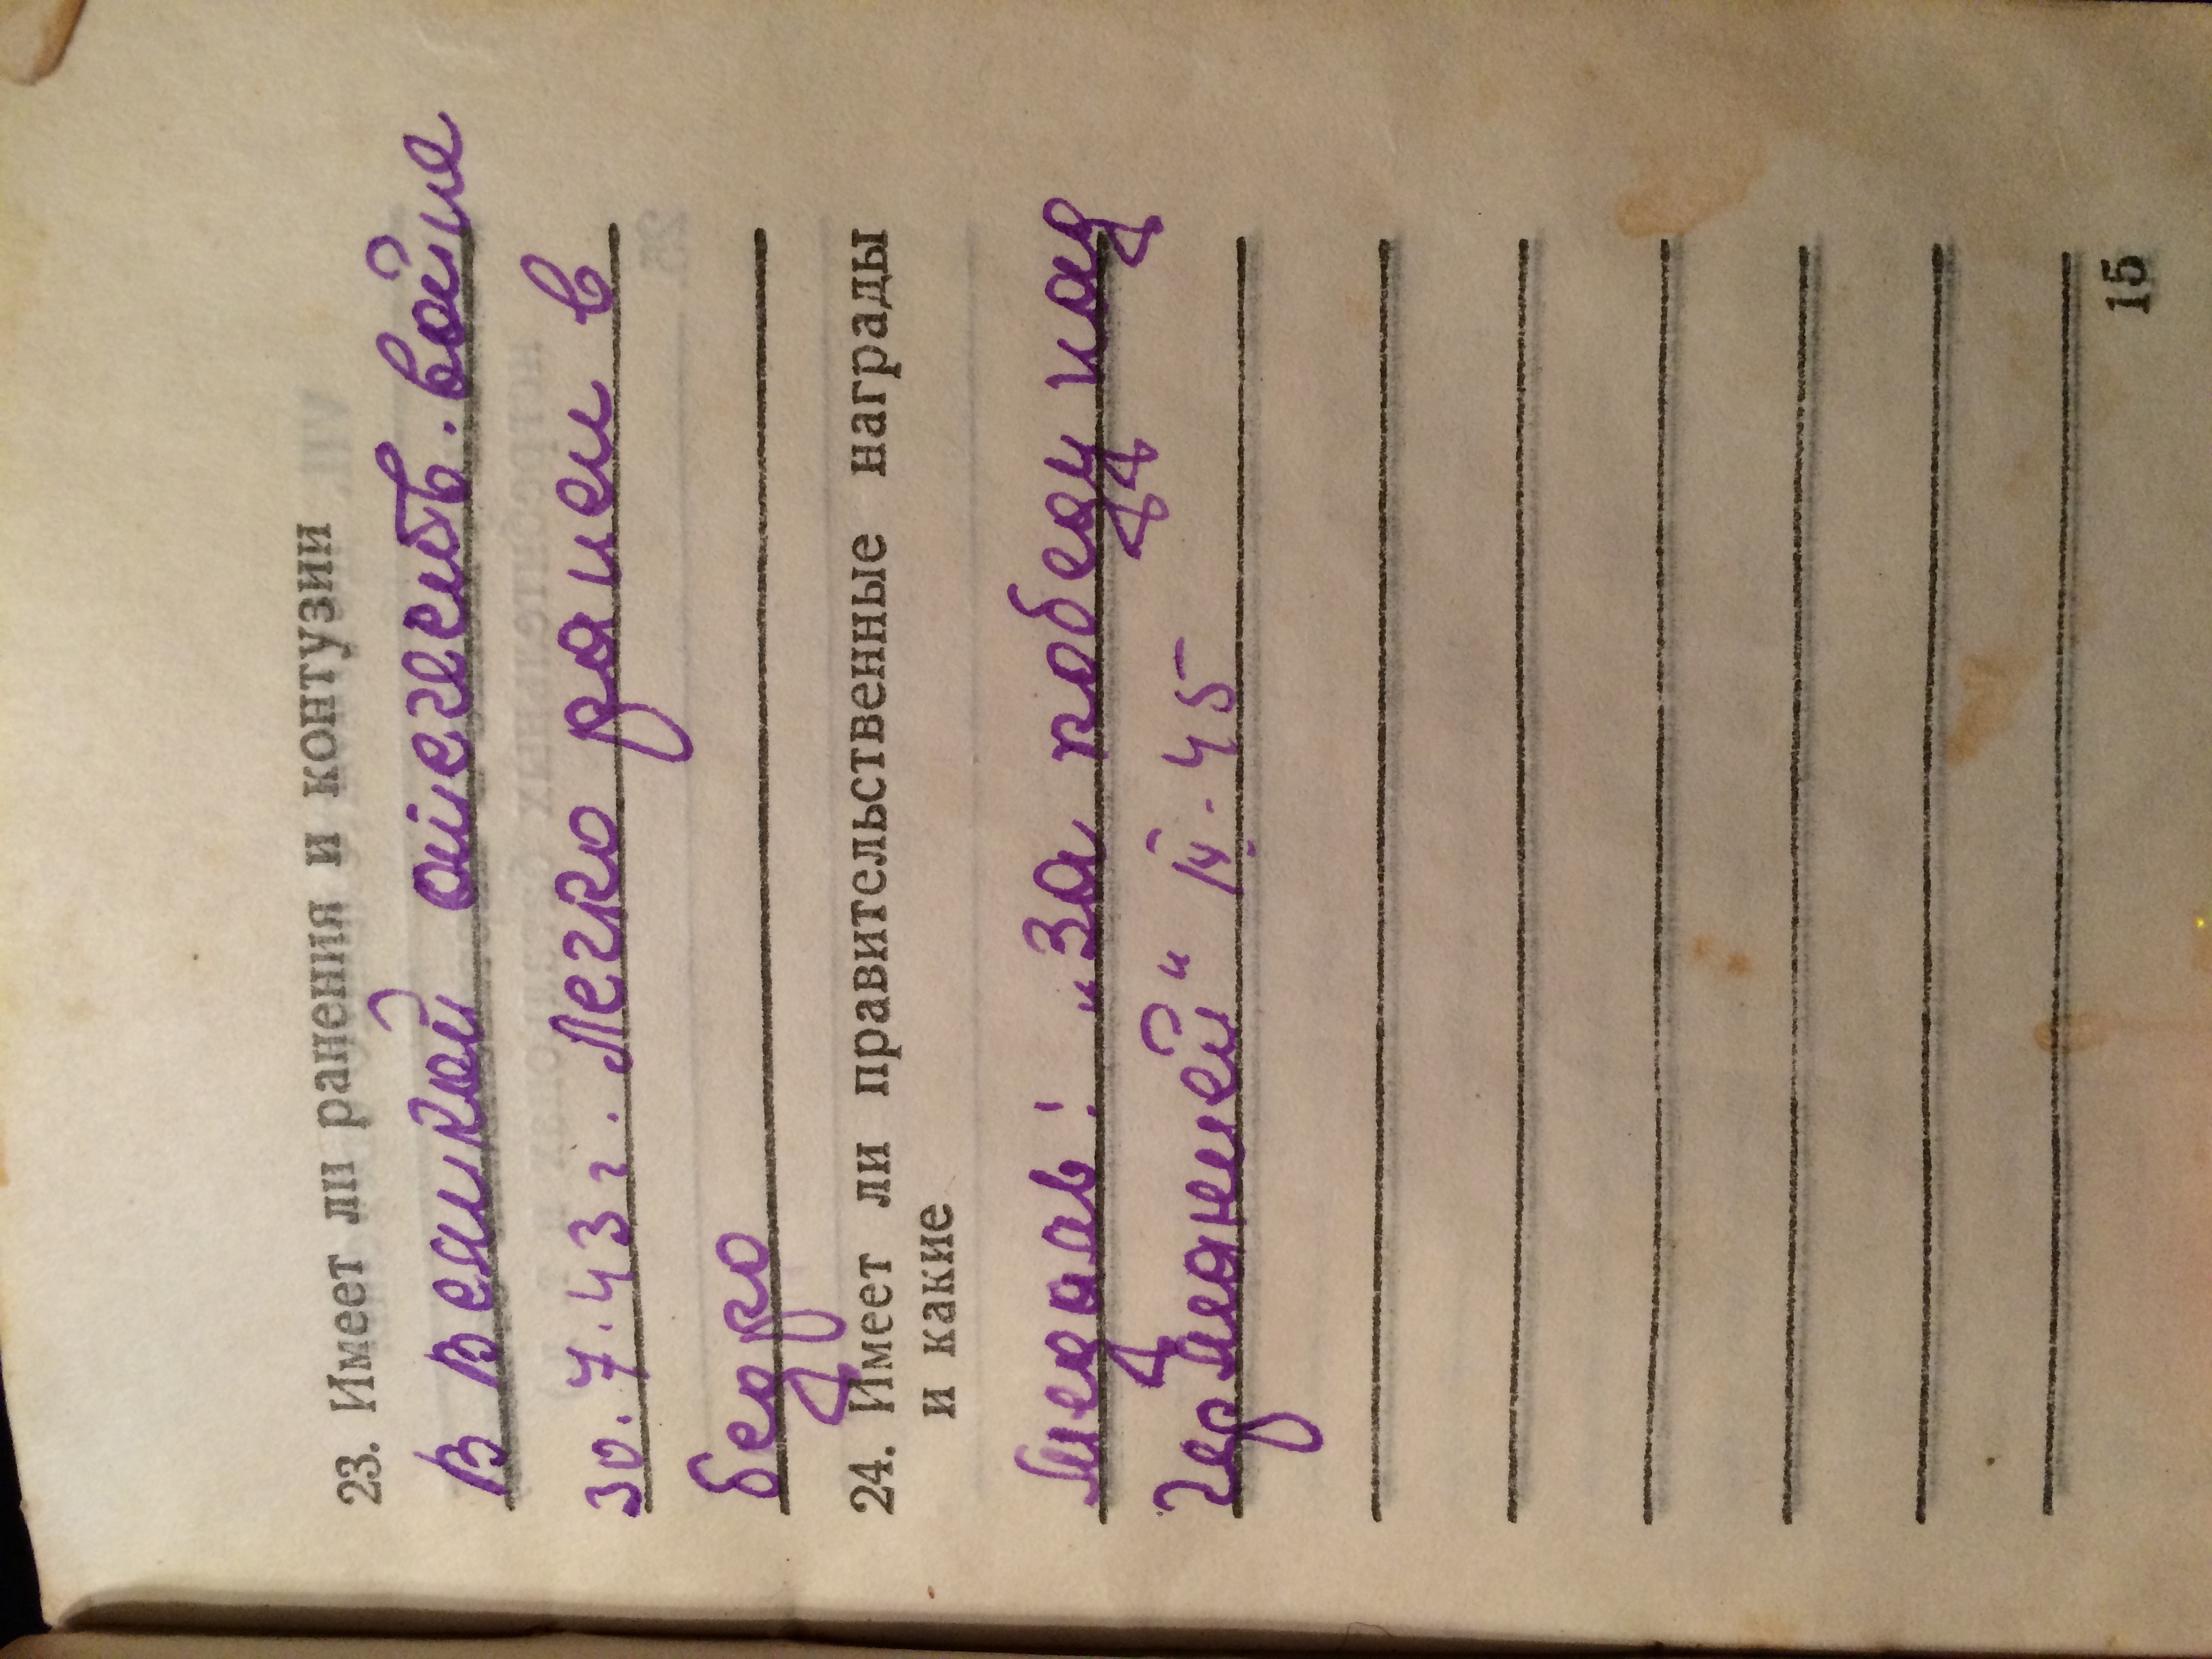 23. Имеет ли ранения и контузии
В Великой отечеств. войне
30.7.43г. Легко ранен в
бедро
24. Имеет ли правительственные награды
и какие
Медаль: „За победу над
Германией“ IV-45
15